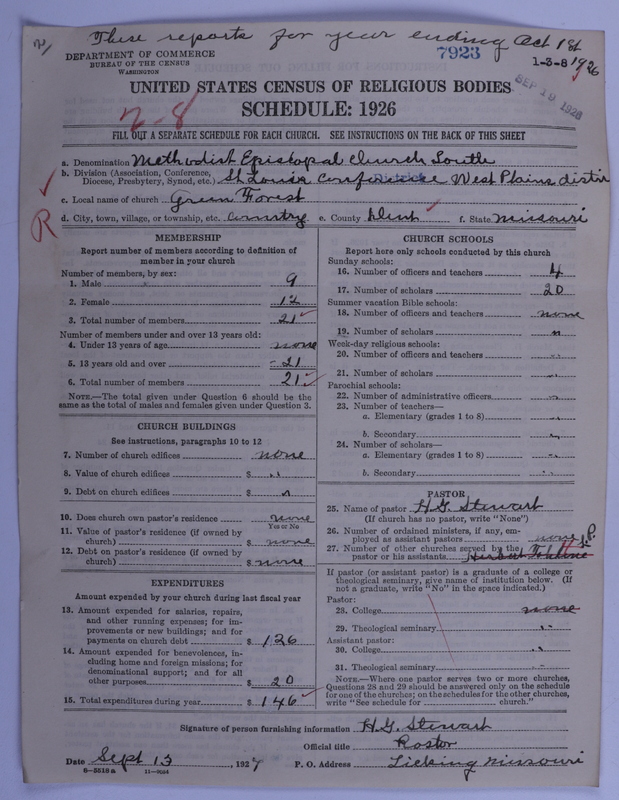 These reports for year ending Oct 1st
1926
7923
1-3-8
DEPARTMENT OF COMMERCE
BUREAU OF THE CENSUS
WASHINGTON
SEP 19 1928
UNITED STATES CENSUS OF RELIGIOUS BODIES
2-8
SCHEDULE: 1926
FILL OUT A SEPARATE SCHEDULE FOR EACH CHURCH. SEE INSTRUCTIONS ON THE BACK OF THIS SHEET
a. Denomination Methodist Episcopal Church South
b. Division (Association, Conference, Diocese, Presbytery, Synod, etc.) St Louis Conference West Plains District
c. Local name of church Green Forest
R
d. City, town, village, or township, etc. Country e. County Dent f. State Missouri
MEMBERSHIP
Report number of members according to definition of member in your church
Number of members, by sex:
1. Male 9
2. Female 12
3. Total number of members 21
Number of members under and over 13 years old:
4. Under 13 years of age none
5. 13 years old and over 21
6. Total number of members 21
NOTE.—The total given under Question 6 should be the same as the total of males and females given under Question 3.
CHURCH BUILDINGS
See instructions, paragraphs 10 to 12
7. Number of church edifices none
8. Value of church edifices $ "
9. Debt on church edifices $ "
10. Does church own pastor's residence none
Yes or No
11. Value of pastor's residence (if owned by church) $ none
12. Debt on pastor's residence (if owned by church) $ none
EXPENDITURES
Amount expended by your church during last fiscal year
13. Amount expended for salaries, repairs, and other running expenses; for improvements or new buildings; and for payments on church debt $ 126
14. Amount expended for benevolences, including home and foreign missions; for denominational support; and for all other purposes $ 20
15. Total expenditures during year $ 146
CHURCH SCHOOLS
Report here only schools conducted by this church
Sunday schools:
16. Number of officers and teachers 4
17. Number of scholars 20
Summer vacation Bible schools:
18. Number of officers and teachers none
19. Number of scholars "
Week-day religious schools:
20. Number of officers and teachers "
21. Number of scholars "
Parochial schools:
22. Number of administrative officers "
23. Number of teachers—
a. Elementary (grades 1 to 8) "
b. Secondary "
24. Number of scholars—
a. Elementary (grades 1 to 8) "
b. Secondary "
PASTOR
25. Name of pastor H. G. Stewart
(If church has no pastor, write "None")
26. Number of ordained ministers, if any, employed as assistant pastors none
27. Number of other churches served by the pastor or his assistants
If pastor (or assistant pastor) is a graduate of a college or theological seminary, give name of institution below. (If not a graduate, write "No" in the space indicated.)
Pastor:
28. College none
29. Theological seminary "
Assistant pastor:
30. College "
31. Theological seminary "
NOTE.—Where one pastor serves two or more churches, Questions 28 and 29 should be answered only on the schedule for one of the churches; on the schedules for the other churches, write "See schedule for ____ church."
Signature of person furnishing information H. G. Stewart
Official title Pastor
Date Sept 13, 1927 P. O. Address Licking Missouri
8-5518a 11-9084